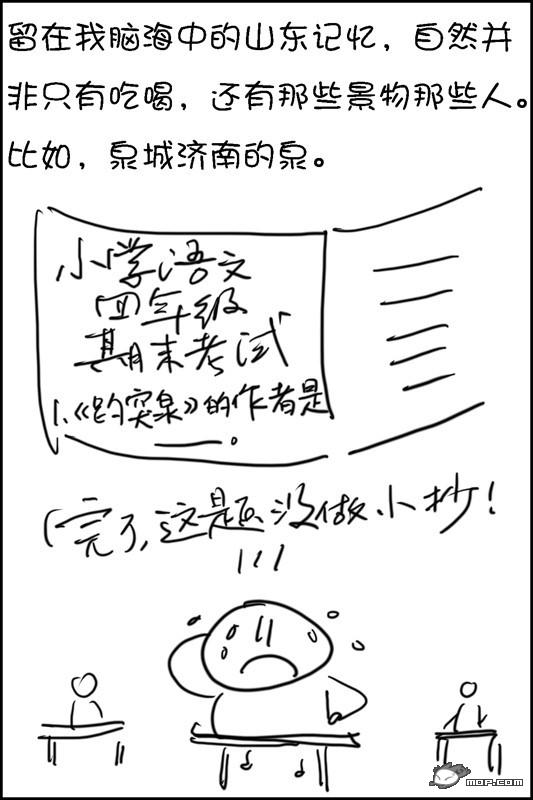 留在我脑海中的山东记忆，自然并
非只有吃喝，还有那些景物那些人。
比如，泉城济南的泉。
小学语文
四年级
期末考试
1.《趵突泉》的作者是
____。
(完了,这是题没做小抄!
MOP.COM